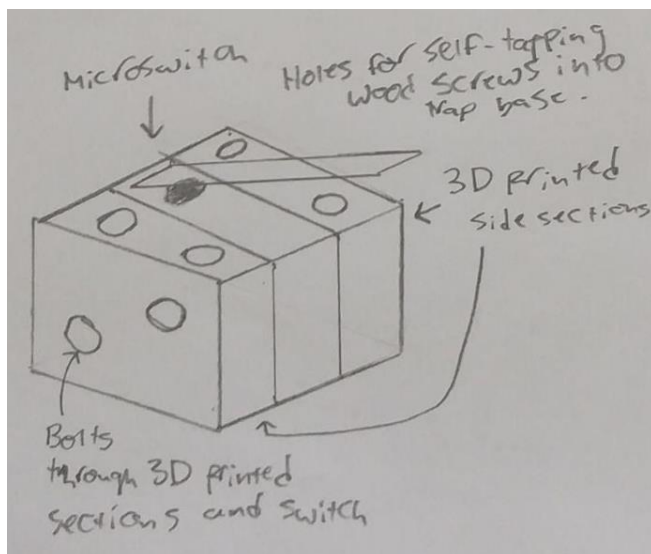 Microswitch
Holes for self-tapping
wood screws into
trap base.
3D printed
side sections
Bolts
through 3D printed
sections and switch